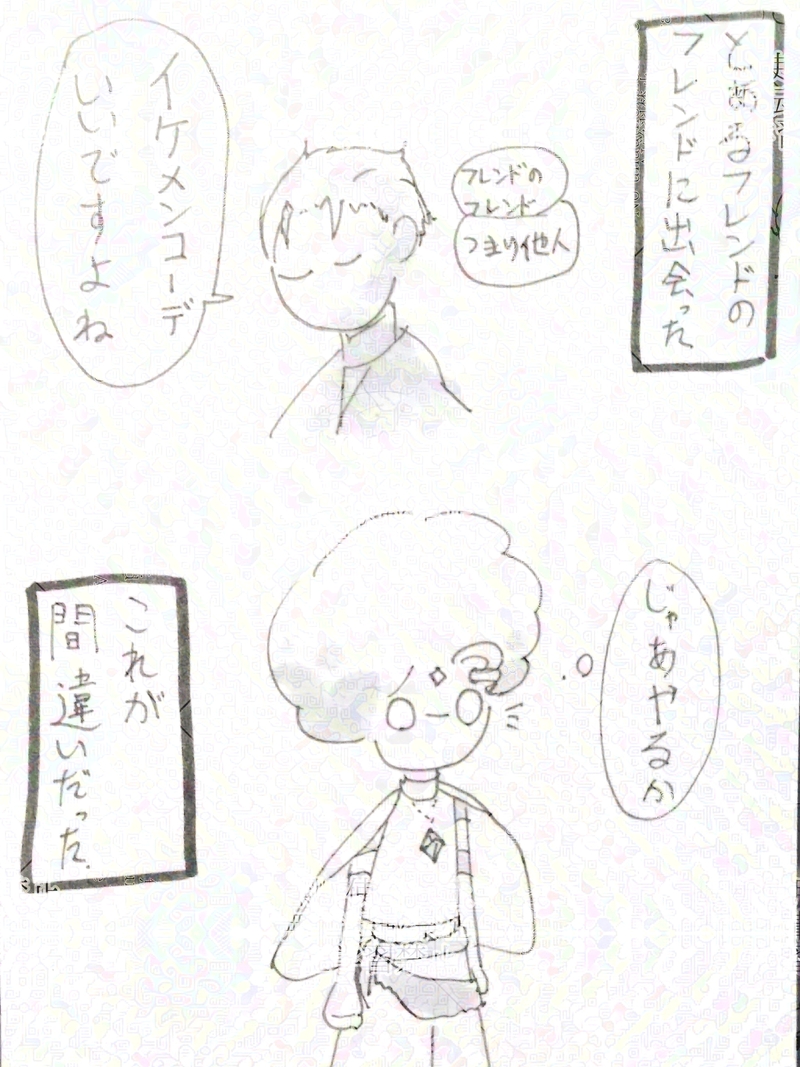 とあるフレンドの
フレンドに出会った
フレンドの
フレンド
つまり他人
イケメンコーデ
いいですよね
じゃあやるか
これが
間違いだった